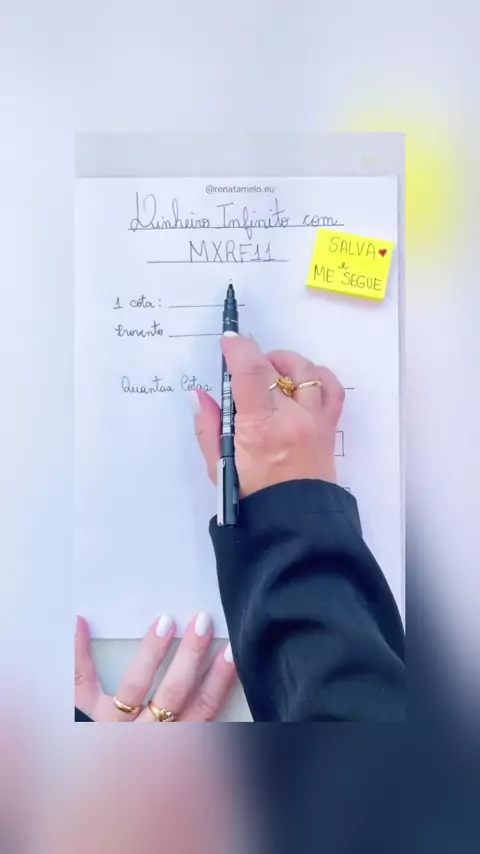 @renatamelo.eu
Dinheiro Infinito com
MXRF11
SALVA
e
ME SEGUE
1 cota:
Provento
Quantas Cotas